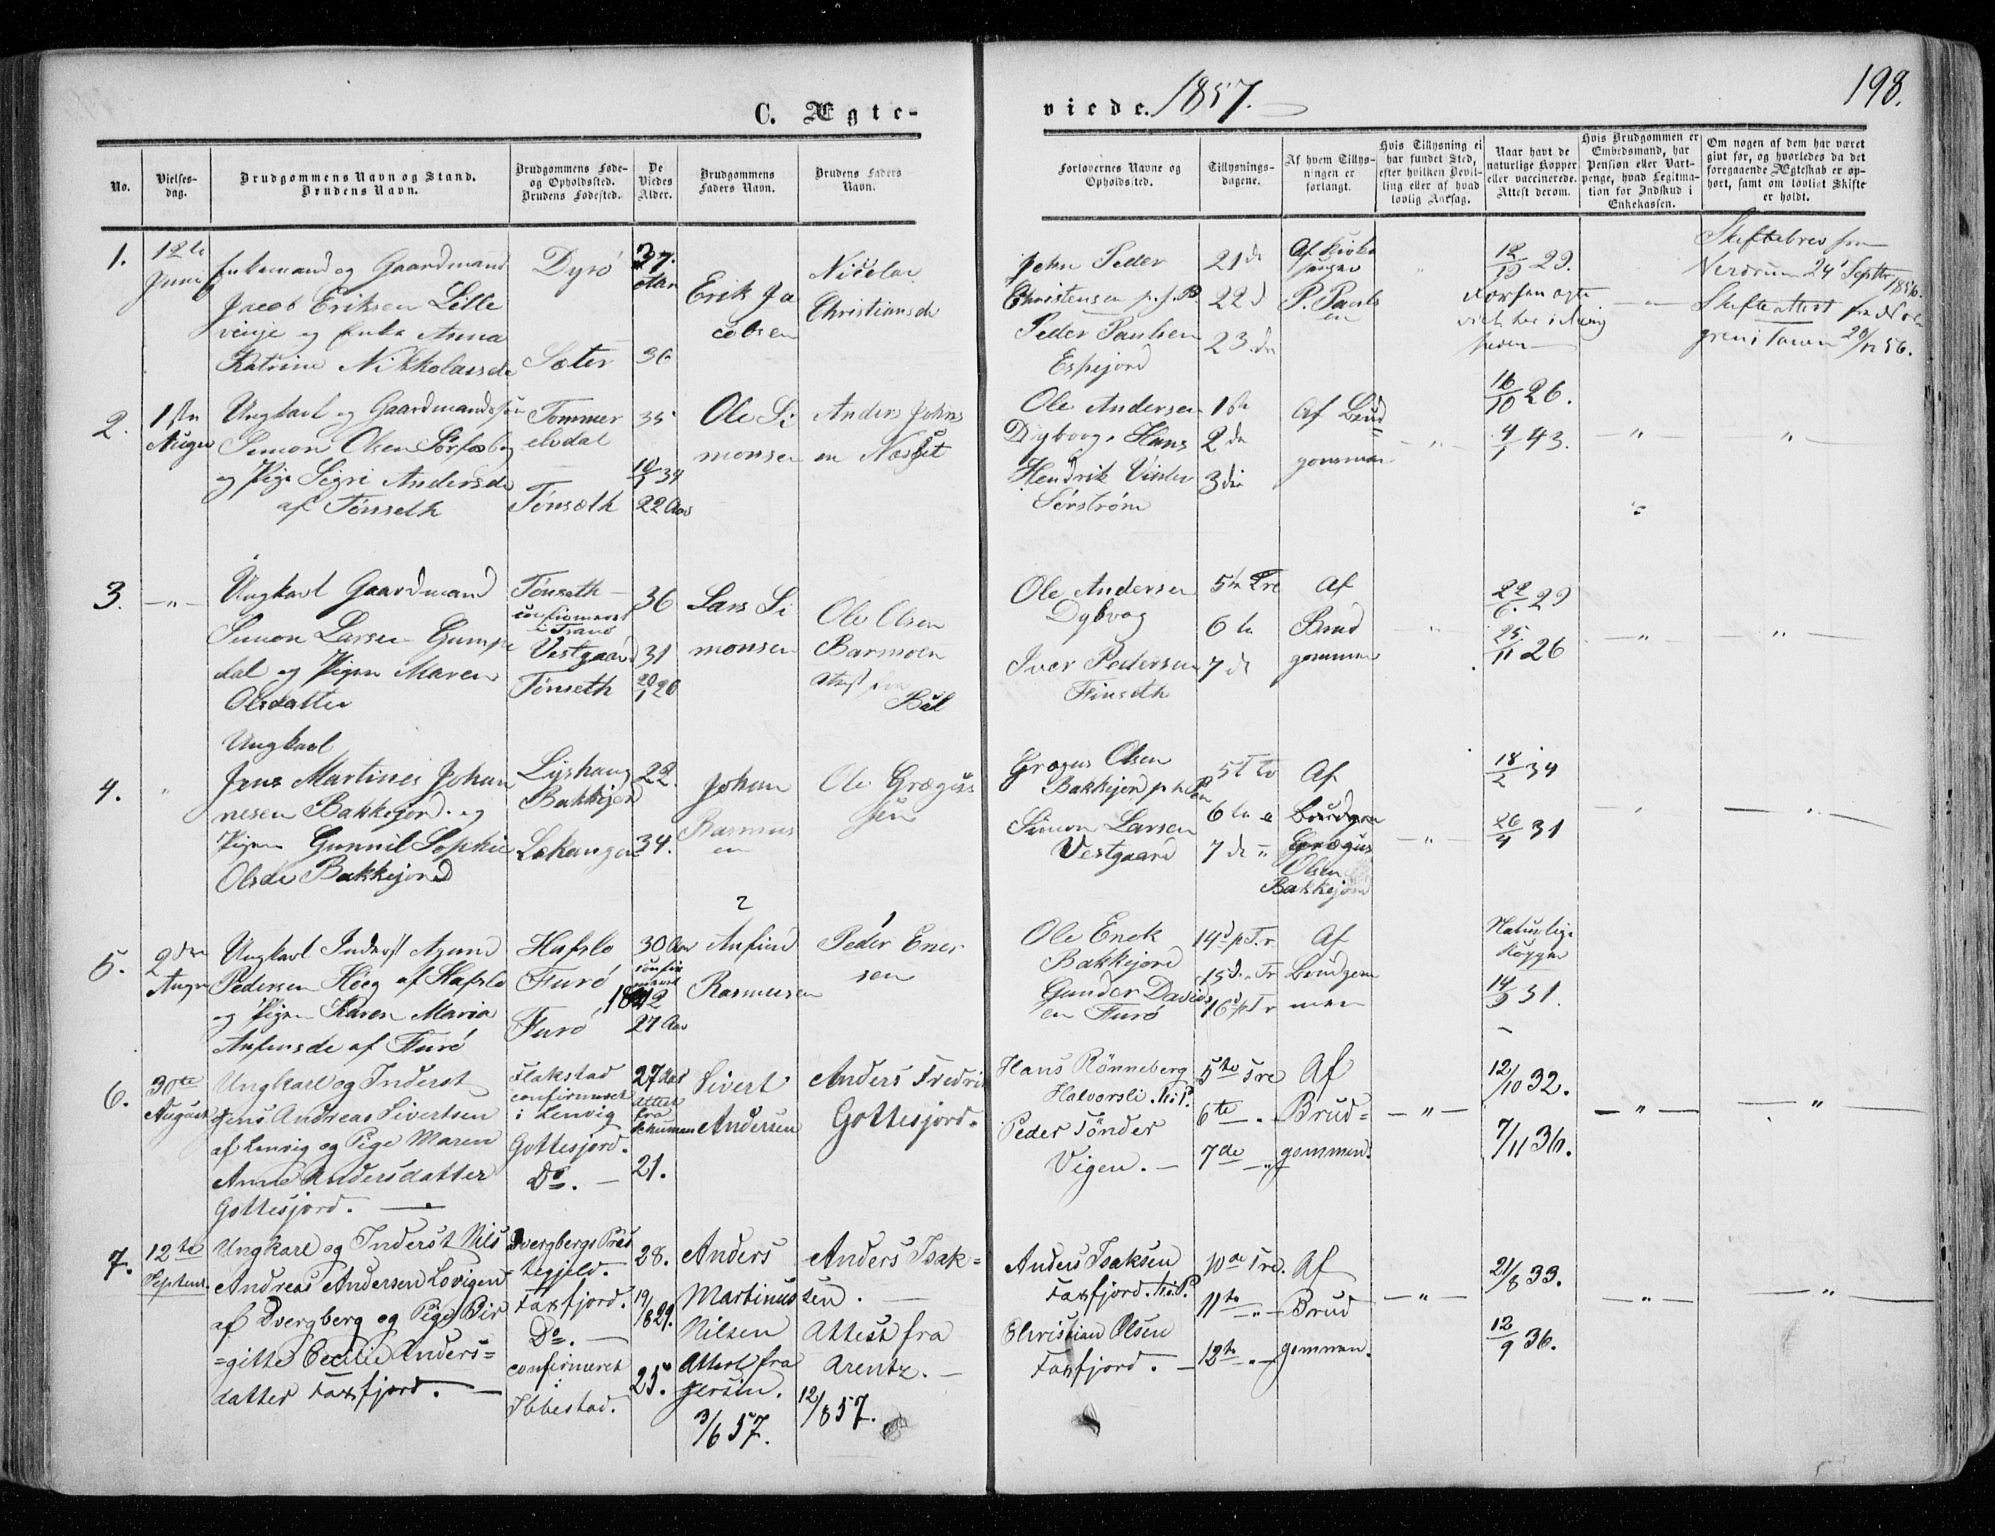 198.
C. Ægte-
viede. 1857.
No.
Vielses-
dag.
Brudgommens Navn og Stand.
Brudens Navn.
Brudgommens Føde-
og Opholdssted.
Brudens Fødested.
De
Viedes
Alder.
Brudgommens
Faders Navn.
Brudens Faders
Navn.
Forlovernes Navne og
Opholdssted.
Tillysnings-
dagene.
Af hvem Tillys-
ningen er
forlangt.
Hvis Tillysning ei
har fundet Sted,
efter hvilken Bevil-
ling eller af hvad
lovlig Aarsag.
Naar havt de
naturlige Kopper
eller vaccinerede.
Attest derom.
Hvis Brudgommen er
Embedsmand, har
Pension eller Vart-
penge, hvad Legitima-
tion for Indskud i
Enkekassen.
Om nogen af dem har været
gift før, og hvorledes da det
foregaaende Ægteskab er op-
hørt, samt om lovligt Skifte
er holdt.
1.
12te
Juni
Enkemand og Gaardmand
Jacob Eriksen Lille
vinje og Enke Anna
Katrine Nikkolaisde
Dyrö
Sæter
37.
36
Erik Ja
cobsen
Nicolai
Christiansde
John Peder
Christensen
Peder Paulsen
Espejord
21de
22d
23.de
P. Pauls
en
12/12 29.
Skiftebrev fra
24 Septbr 1856.
Skifteattest
20/12 56.
2.
1ste
August
Ungkarl og Gaardmandssøn
Simon Olsen Sørfosbog
og Pige Sigri Andersde
af Tønseth
Tommer
elvdal
Tönsæth
35
10/3 34
22 Aar
Ole Si
monsen
Anders Johns
en Næset
Ole Andersen
Dybvog. Hans
Hendrik Vinter
Sørstrøm
1ste
2de
3die
Af Brud
gommen
16/10 26.
4/1 43.
3.
Ungkarl Gaardmand
Simon Larsen Gumpe
dal og Pigen Maren
Olsdatter
Tønseth
confirmeret
i Tranö
Vestgaard
Tønseth
36
31
20/1 20
Lars Si
monsen
Ole Olsen
Barmoen
Attest fra
Ole Andersen
Dybvog
Iver Pedersen
Finseth
5te Tre
6te
7de
Af
Brud
gommen
22/6. 29
25/11 26
4.
Ungkarl
Jens Martines Johan
nesen Bakkejord. og
Pigen Gunnil Sophie
Olsde Bakkejord
Lyshaug
Bakkejord
Lekanger
22.
34.
Johan
Rasmus
en
Ole Grægus
sen
Grægus Olsen
Bakkejord
Simon Larsen
Vestgaard
5te
6te
7de
Af
Brudgom
Grægus
Olsen
Bakkejord
18/2 34
26/4 31
5.
2den
August
Ungkarl Inderst
Pedersen Höeg af Hafslo
og Pigen Karen Maria
Anfinsde af Furö
Hafslo
Furö
Furö
30 Aar
confir
meret
1842
27 Aar
2
Anfind
Rasmusen
1
Peder Ener
sen
Ole Enok
Bakkejord
Gunder Davids
en Furö
14d p Tr.
15d. Tr
16d p Tr
Af
Brudgom
men
Naturlige
Kopper
14/9 31.
6.
30te
August
Ungkarl og Inderst
Jens Andreas Sivertsen
af Lenvig og Pige Maren
Anne Andersdatter
Gottesjord.
Flakstad
confirmeret
i Lenvig
Gottesjord.
Do.
27 Aar
Attest
fra
21.
Sivert
Andersen
Anders Fredrik
Gottesjord.
Hans Rönneberg
Halvorsli. H.P.
Peder Tönder
Vigen.
5te Tre
6te
7de
Af
Brud=
gommen.
12/10 32.
7/11 36.
7.
12te
Septemb.
Ungkarl og Inderst Nils
Andreas Andersen Lovigen
af Dvergberg og Pige Bir
=gitte Cecilie Anders=
datter Faxfjord.
Dvergbergs Præs
tegjeld.
Faxfjord.
Do.
confirmeret
i
Ibbestad.
28.
19/8 29.
25.
Anders
Martinus
Nilsen
Attest fra
Jersin.
3/6 57.
Anders Isak=
sen.
Attest fra
Arentz.
12/8 57.
Anders Isaksen
Faxfjord. H.P.
Christian Olsen
Faxfjord.
10de Tre.
11te
12te
Af
Brud
gommen.
21/8 33.
12/9 36.